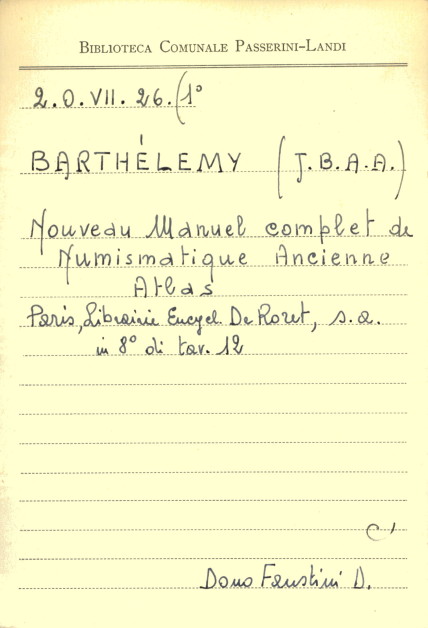 BIBLIOTECA COMUNALE PASSERINI-LANDI
2.O.VII.26.(1°
BARTHÉLEMY (J.B.A.A.)
Nouveau Manuel complet de
Numismatique Ancienne
Atlas
Paris, Librairie Encycl. De Roret, s.a.
in 8° di tav. 12
Dono Faustini D.